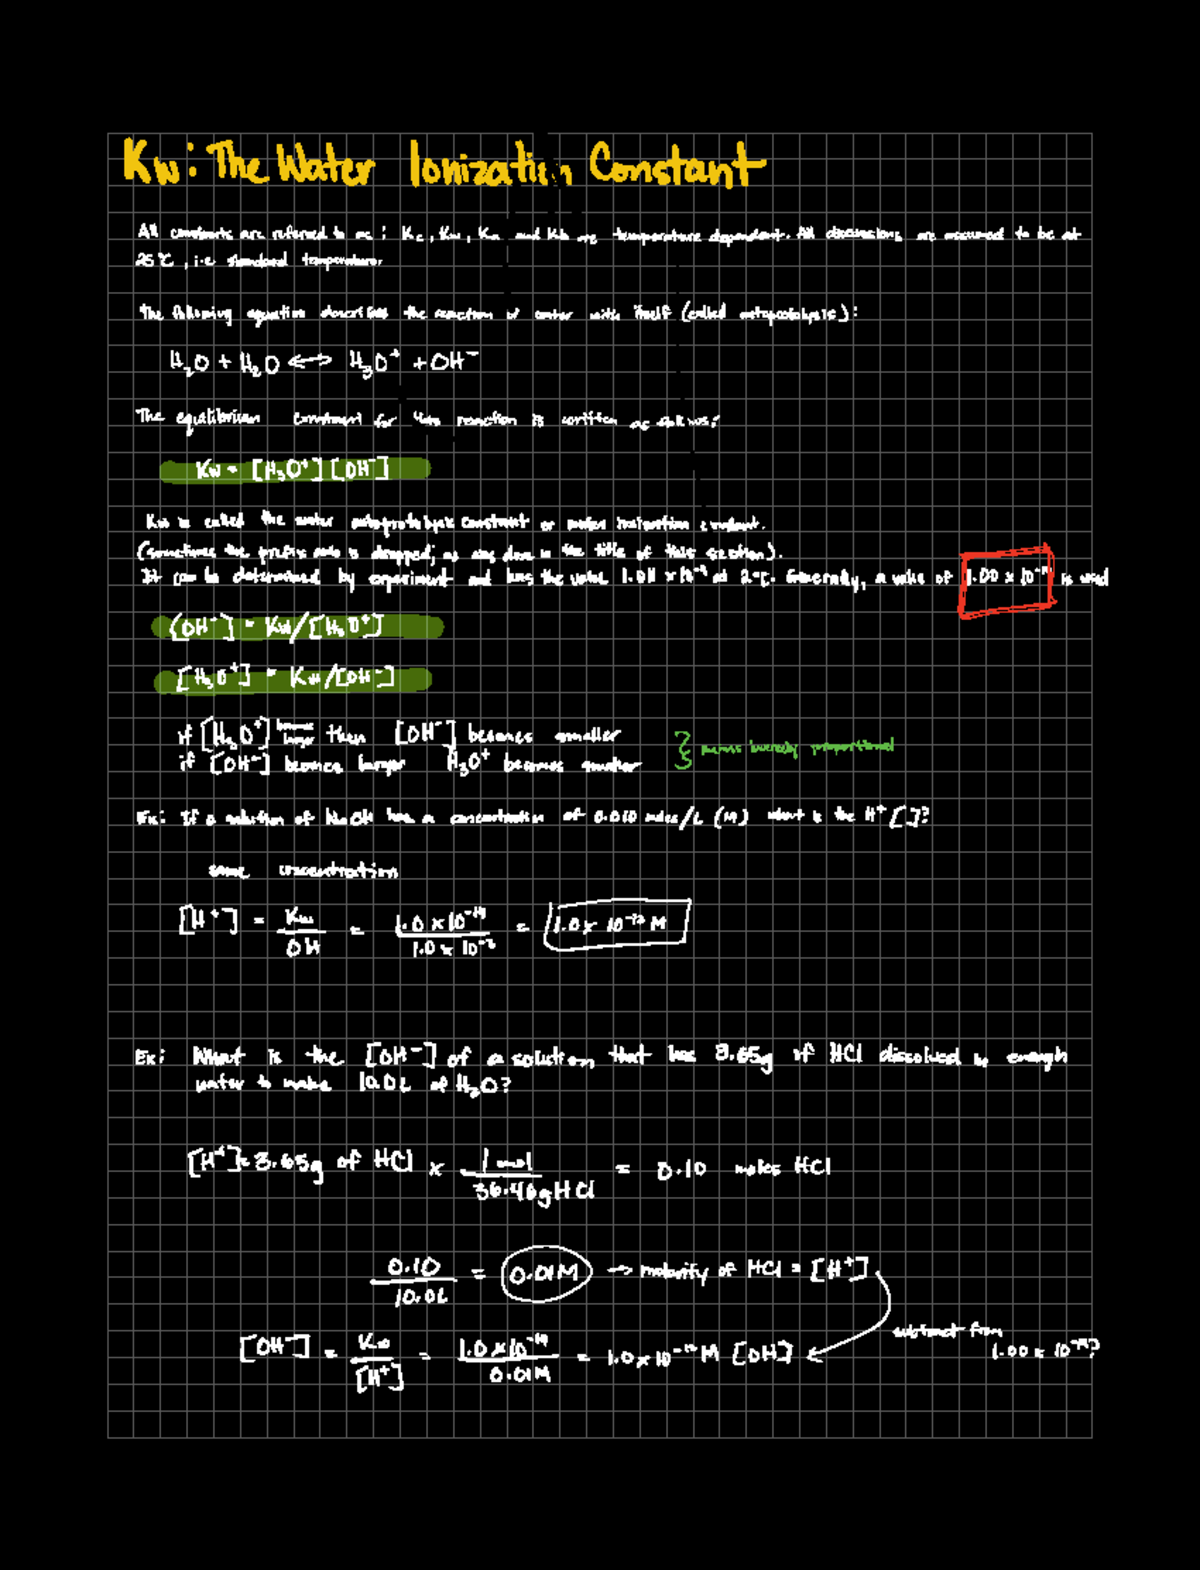 Kw: The Water Ionization Constant
All constants are referred to as: Kc, Kw, Ka and Kb are temperature dependent. All discussions are assumed to be at
25°C, i.e standard temperature.
The following equation describes the reaction of water with itself (called autoprotolysis):
H₂O + H₂O ⟷ H₃O⁺ + OH⁻
The equilibrium constant for this reaction is written as follows:
Kw = [H₃O⁺][OH⁻]
Kw is called the water autoprotolysis constant or water ionization constant.
(sometimes the prefix auto is dropped; as was done in the title of this section).
It can be determined by experiment and has the value 1.011 x 10⁻¹⁴ at °C. Generally, a value of 1.00 x 10⁻¹⁴ is used
[OH⁻] = Kw/[H₃O⁺]
[H₃O⁺] = Kw/[OH⁻]
if [H₃O⁺] becomes larger then [OH⁻] becomes smaller
if [OH⁻] becomes larger H₃O⁺ becomes smaller
} means inversely proportional
Ex: If a solution of NaOH has a concentration of 0.010 moles/L (M) what is the H⁺ [ ]?
same concentration
[H⁺] = Kw/OH = 1.0 x 10⁻¹⁴/1.0 x 10⁻² = 1.0 x 10⁻¹² M
Ex: What is the [OH⁻] of a solution that has 3.65g of HCl dissolved in enough
water to make 10.0L of H₂O?
[H⁺]= 3.65g of HCl x 1 mol/36.46g HCl = 0.10 moles HCl
0.10/10.0L = 0.01M → molarity of HCl = [H⁺]
subtract from
1.00 x 10⁻¹⁴?
[OH⁻] = Kw/[H⁺] = 1.0 x 10⁻¹⁴/0.01M = 1.0 x 10⁻¹² M [OH]